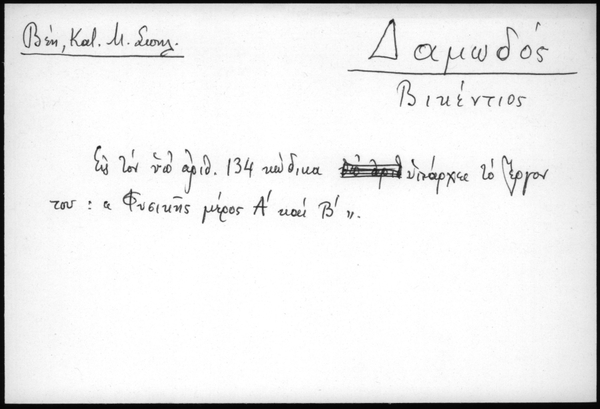 Βέη, Κατ. Μ. Σπηλ.
Δαμωδός
Βικέντιος
Εἰς τὸν ὑπ' ἀριθ. 134 κώδικα ὑπάρχει τὸ ἔργον
του : « Φυσικῆς μέρος Α' καὶ Β' ».